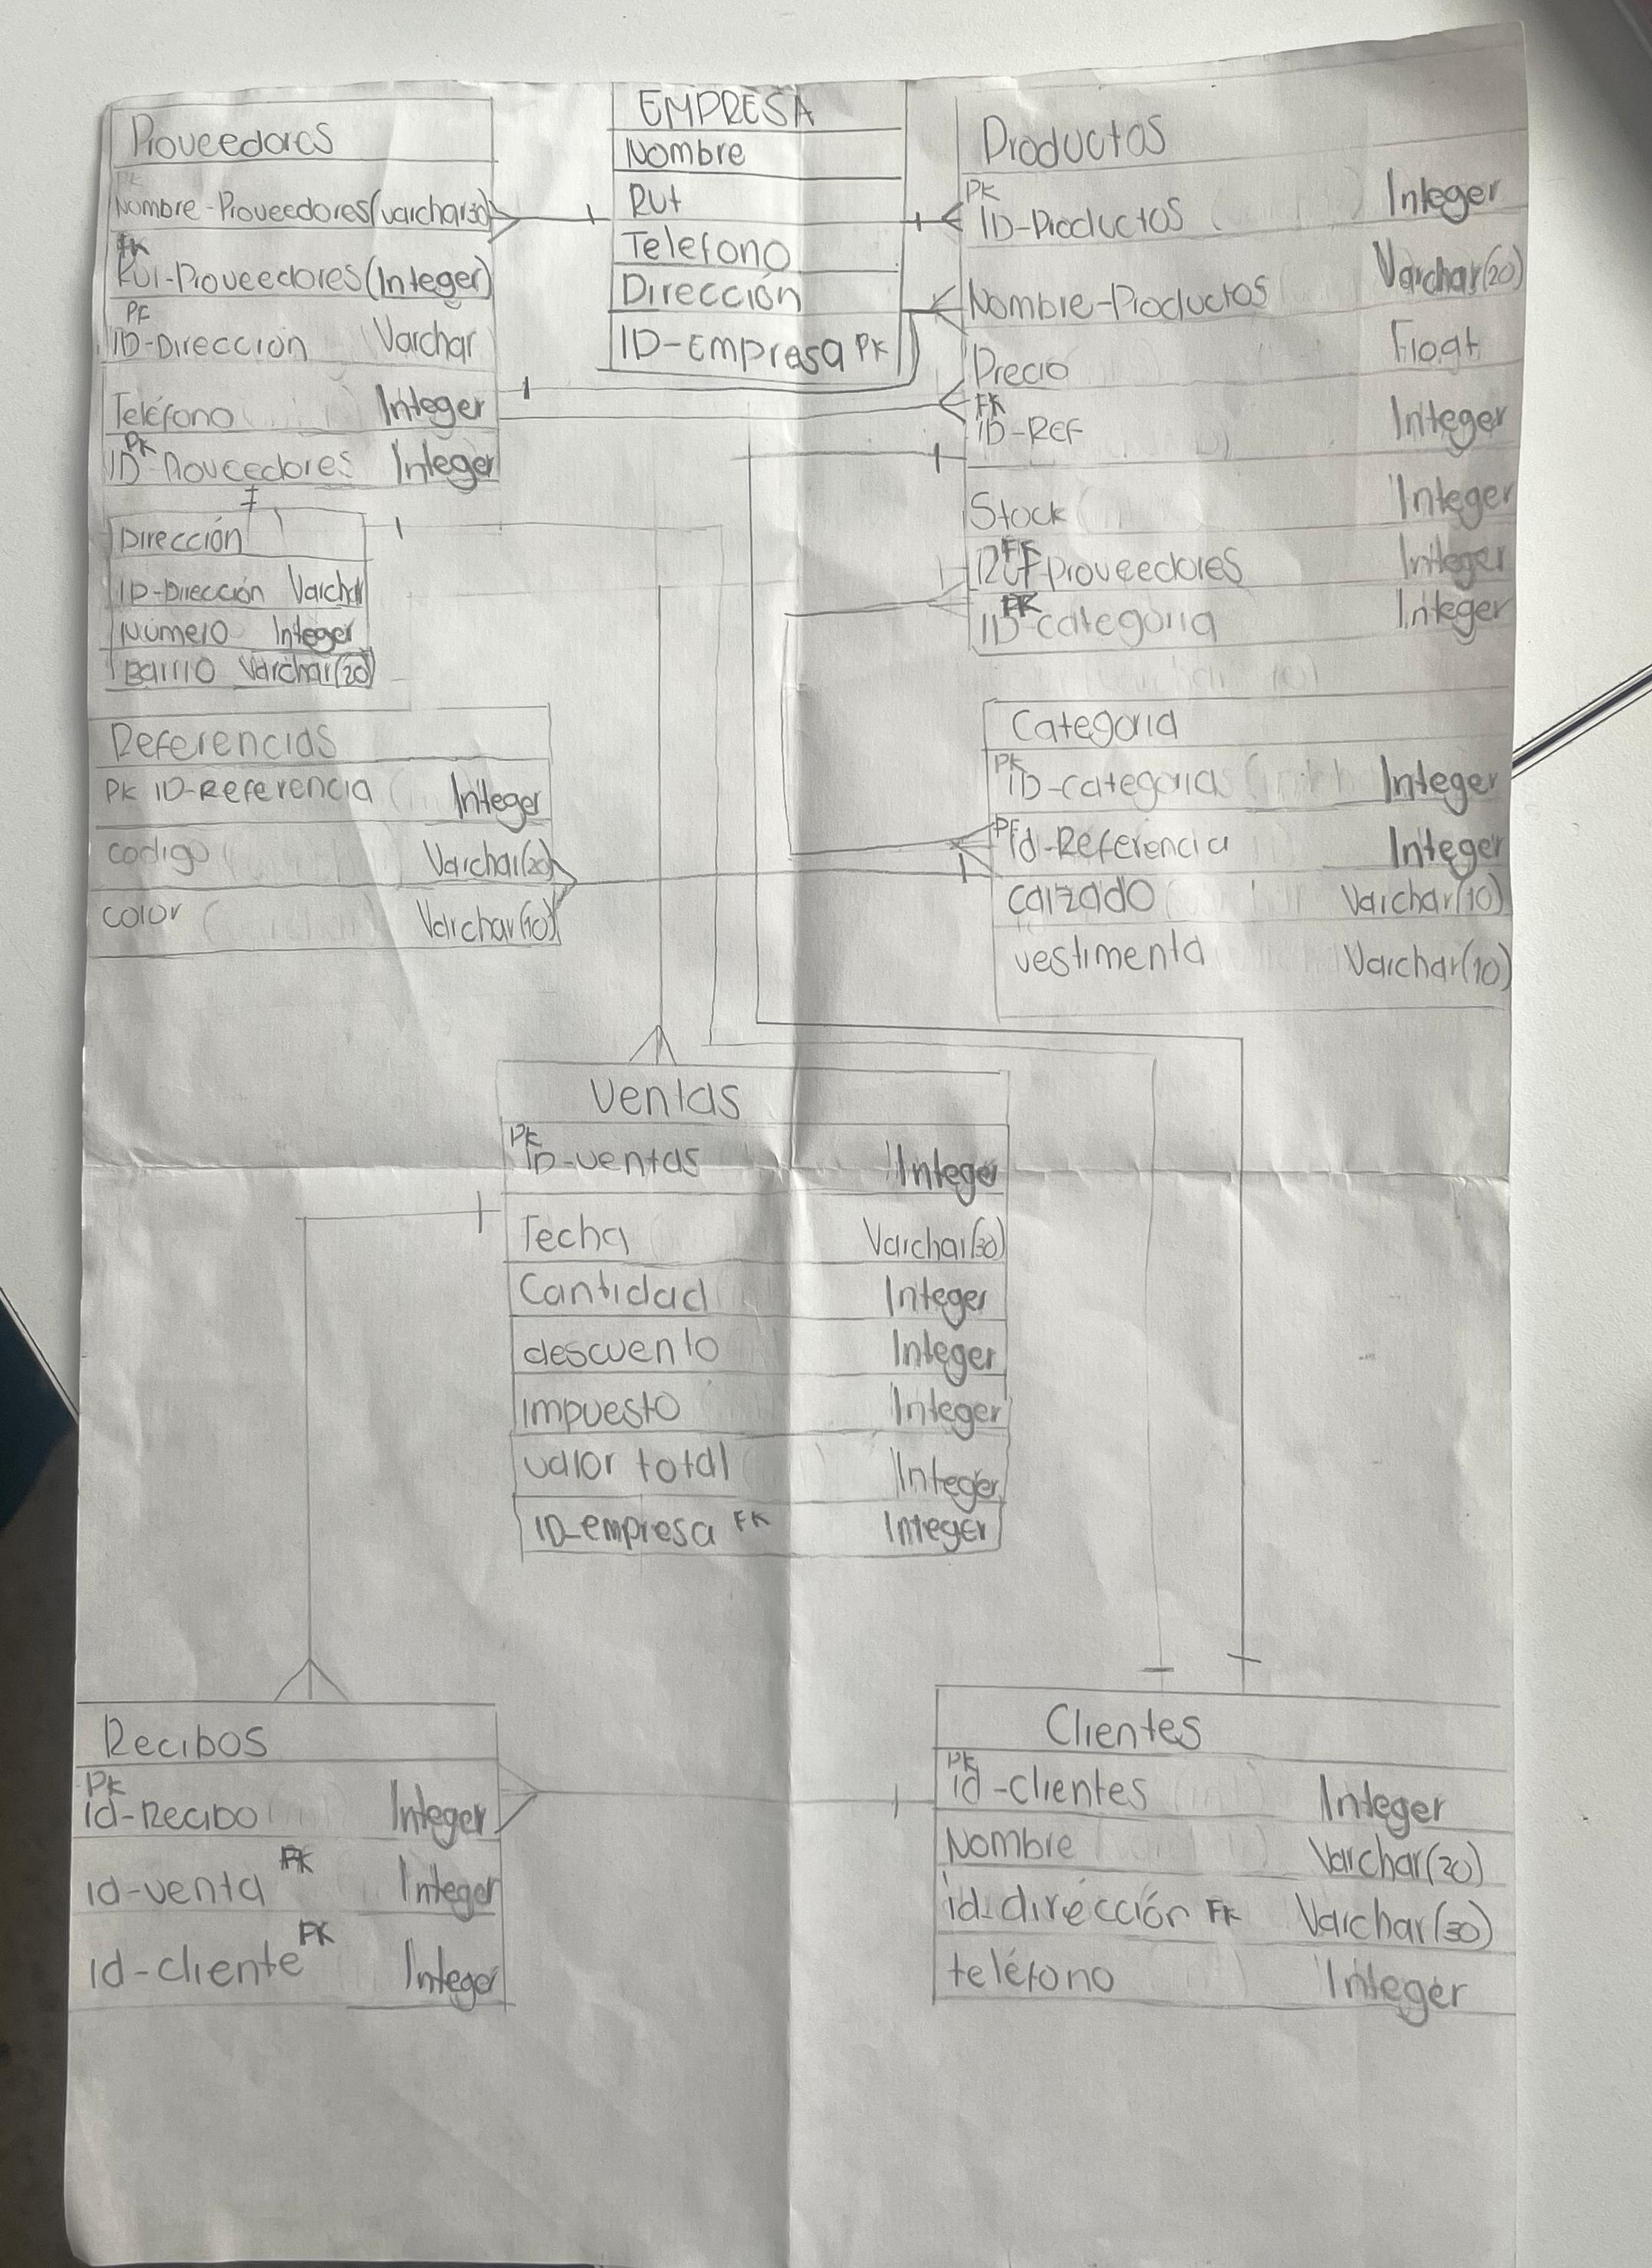 Proveedores
Nombre-Proveedores(varchar30)
FK
Rut-Proveedores(Integer)
PF
ID-Dirección Varchar
Teléfono Integer
PK
ID-Proveedores Integer
EMPRESA
Nombre
Rut
Telefono
Dirección
ID-Empresa PK
Productos
PK
ID-Productos Integer
Nombre-Productos Varchar(20)
Precio Float
FK
ID-Ref Integer
Stock Integer
Rut-Proveedores Integer
FK
ID-categoria Integer
Dirección
ID-Dirección Varchar
Número Integer
Barrio Varchar(20)
Referencias
PK ID-Referencia Integer
codigo Varchar(20)
color Varchar(10)
Categoria
PK
ID-categorias Integer
PF
id-Referencia Integer
calzado Varchar(10)
vestimenta Varchar(10)
Ventas
PK
ID-ventas Integer
Fecha Varchar(30)
Cantidad Integer
descuento Integer
impuesto Integer
valor total Integer
ID-empresa FK Integer
Recibos
PK
id-Recibo Integer
id-venta FK Integer
id-cliente FK Integer
Clientes
PK
id-clientes Integer
Nombre Varchar(20)
id-dirección FK Varchar(30)
teléfono Integer